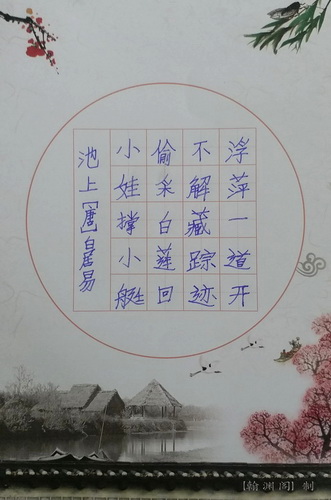 池上【唐】白居易
小娃撑小艇
偷采白莲回
不解藏踪迹
浮萍一道开
【翰渊阁】制